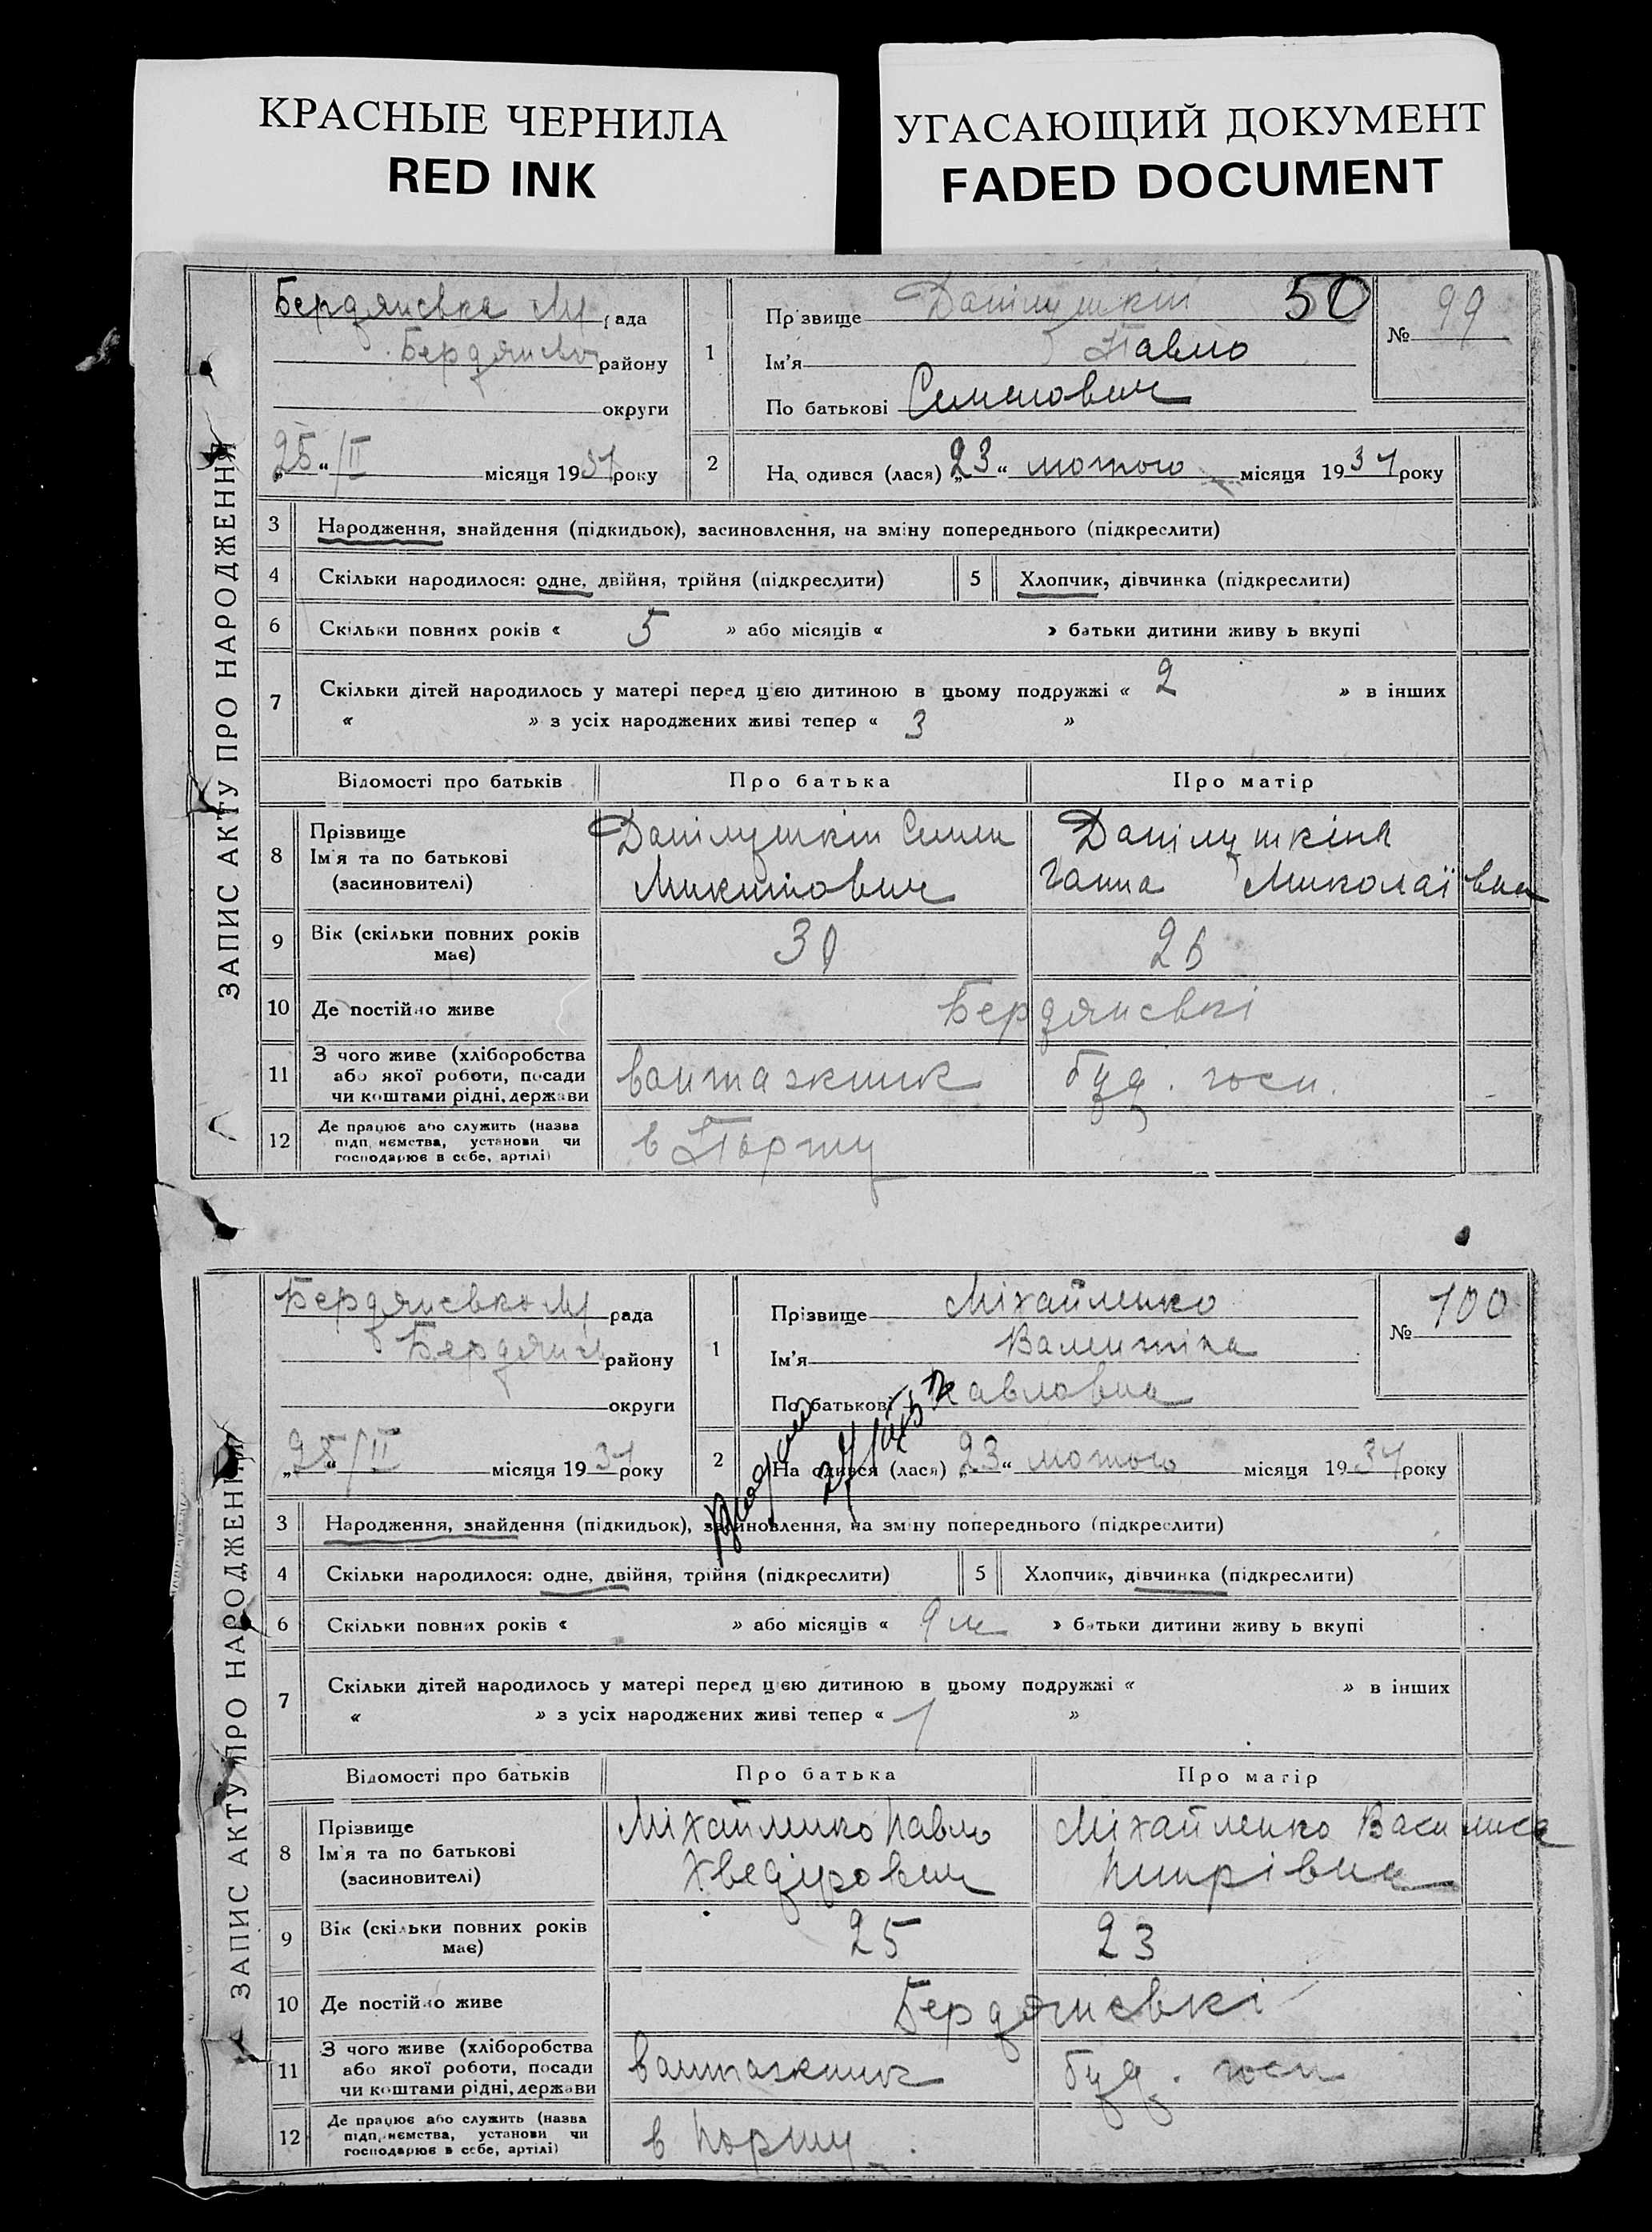 КРАСНЫЕ ЧЕРНИЛА
RED INK
УГАСАЮЩИЙ ДОКУМЕНТ
FADED DOCUMENT
ЗАПИС АКТУ ПРО НАРОДЖЕННЯ
Бердянська рада
Бердянськ району
округи
„25“ /II місяця 1937 року
1
Прізвище Данілушкін 50
Ім'я Павло
По батькові Семенович
№ 99
2
На одився (лася) „23“ лютого місяця 1937 року
3 Народження, знайдення (підкидьок), засиновлення, на зміну попереднього (підкреслити)
4 Скільки народилося: одне, двійня, трійня (підкреслити) 5 Хлопчик, дівчинка (підкреслити)
6 Скільки повних років « 5 » або місяців « » батьки дитини живу ь вкупі
7 Скільки дітей народилось у матері перед цією дитиною в цьому подружжі « 2 » в інших
« » з усіх народжених живі тепер « 3 »
Відомості про батьків Про батька Про матір
8 Прізвище Ім'я та по батькові (засиновителі)
Данілушкін Семен Микитович
Данілушкіна Ганна Миколаївна
9 Вік (скільки повних років має) 30
10 Де постійно живе Бердянські
11 З чого живе (хліборобства або якої роботи, посади чи коштами рідні, держави вантажник буд. госп.
12 Де працює або служить (назва підприємства, установи чи господарює в себе, артілі) в Порту
ЗАПИС АКТУ ПРО НАРОДЖЕННЯ
Бердянська рада
Бердянськ району
округи
„25“ /II місяця 1937 року
1
Прізвище Міхайленко
Ім'я Валентіна
По батькові Павловна
№ 100
2
На одився (лася) „23“ лютого місяця 1937 року
3 Народження, знайдення (підкидьок), засиновлення, на зміну попереднього (підкреслити)
4 Скільки народилося: одне, двійня, трійня (підкреслити) 5 Хлопчик, дівчинка (підкреслити)
6 Скільки повних років « » або місяців « 9 м » батьки дитини живу ь вкупі
7 Скільки дітей народилось у матері перед цією дитиною в цьому подружжі « » в інших
« » з усіх народжених живі тепер « 1 »
Відомості про батьків Про батька Про матір
8 Прізвище Ім'я та по батькові (засиновителі)
Міхайленко Павло Хведірович
Міхайленко Василиса
9 Вік (скільки повних років має) 25 23
10 Де постійно живе Бердянські
11 З чого живе (хліборобства або якої роботи, посади чи коштами рідні, держави вантажник буд. госп
12 Де працює або служить (назва підприємства, установи чи господарює в себе, артілі) в порту